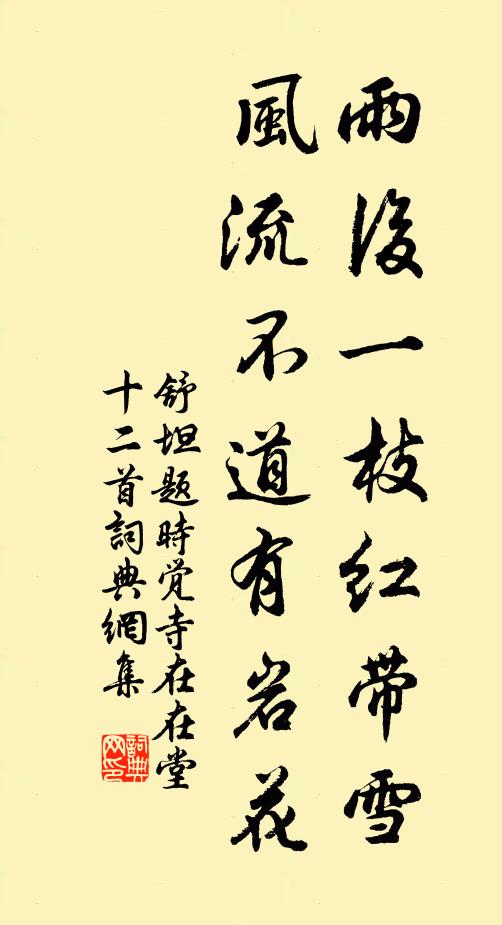 雨後一枝红带雪
風流不道有岩花
舒坦题時觉寺在在堂
十二首詞典網集
詞典
网印